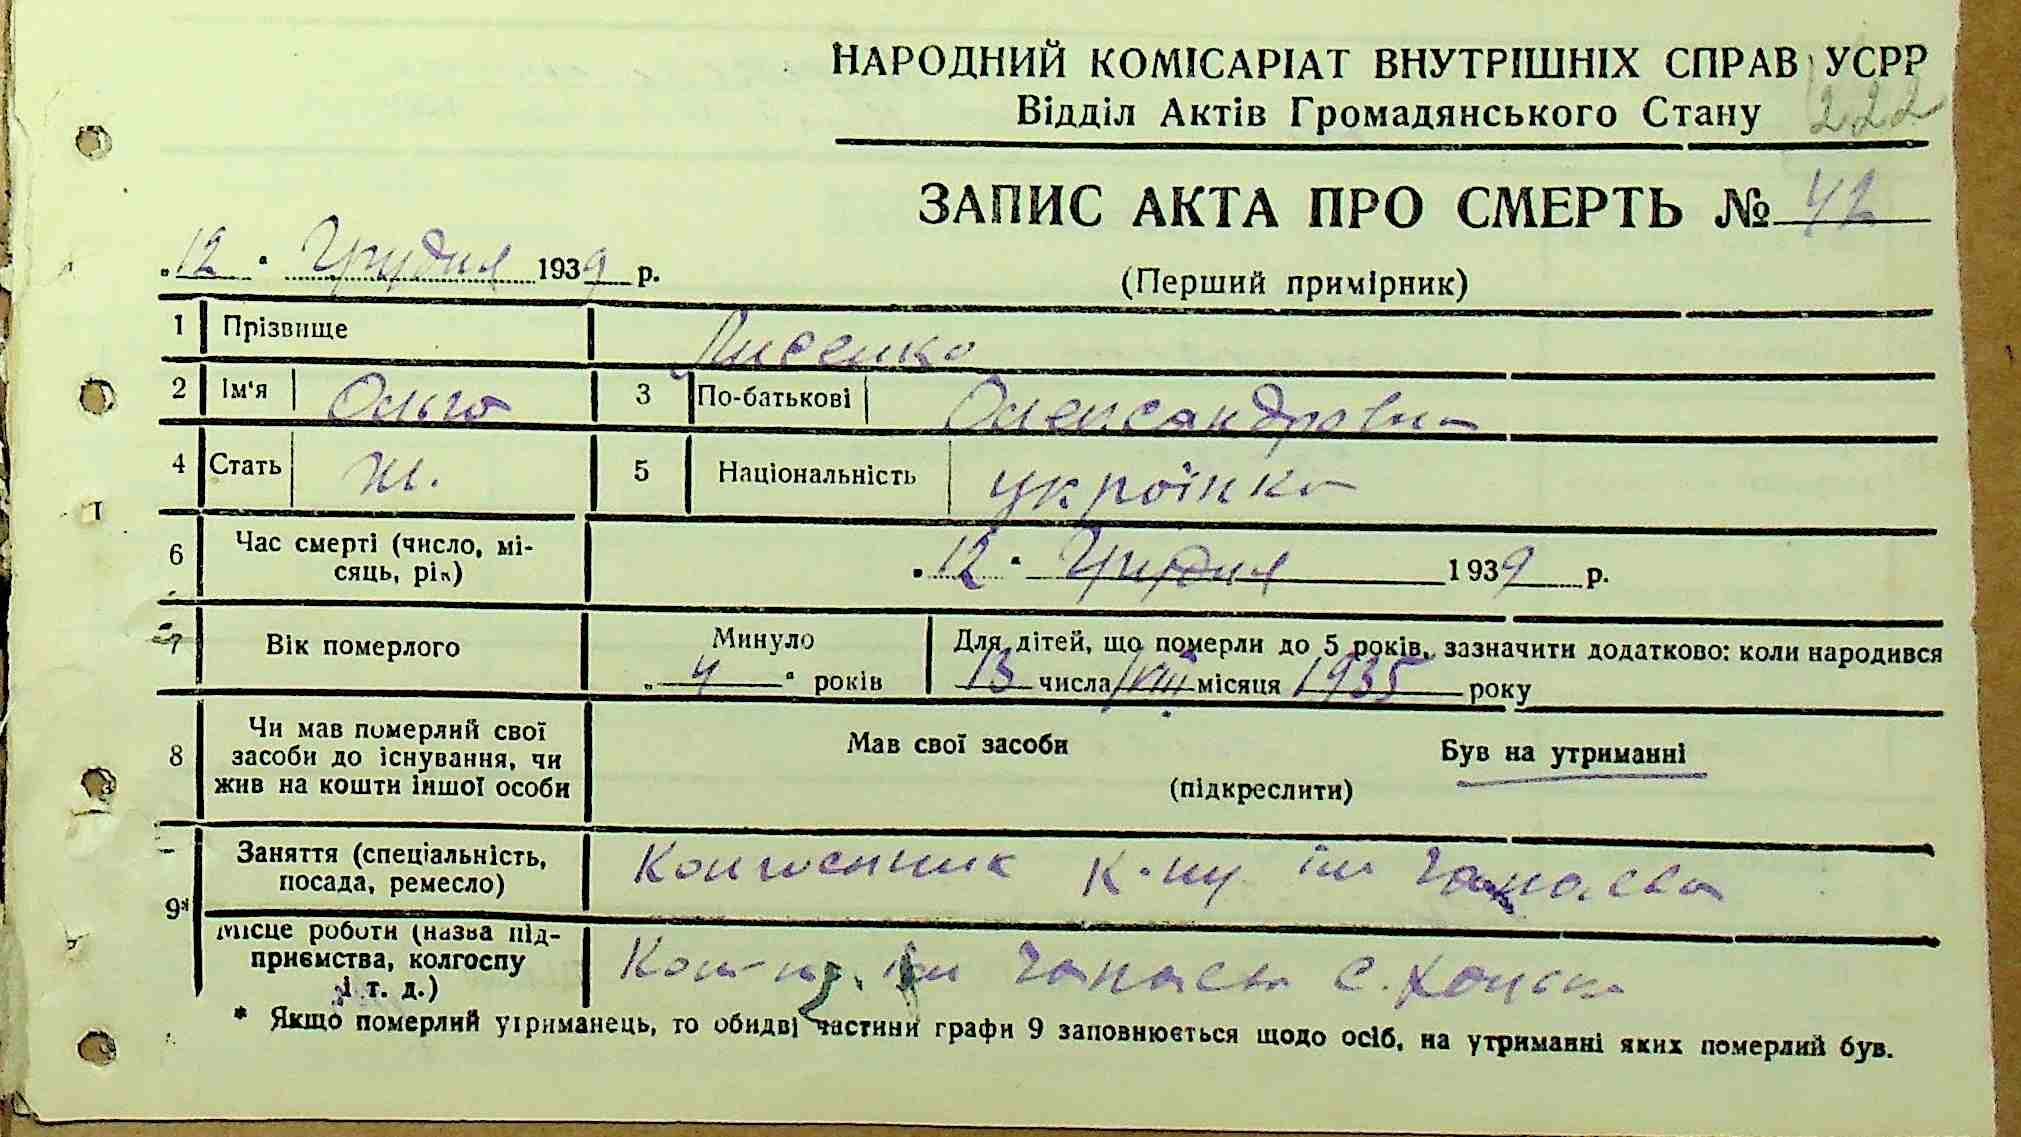 НАРОДНИЙ КОМІСАРІАТ ВНУТРІШНІХ СПРАВ УСРР
Відділ Актів Громадянського Стану
222
ЗАПИС АКТА ПРО СМЕРТЬ № 42
„12“ Грудня 1939 р.
(Перший примірник)
1 Прізвище Лисенко
2 Ім'я Ольга 3 По-батькові Олександровна
4 Стать ж. 5 Національність українка
6 Час смерті (число, мі-
сяць, рік) „12“ Грудня 1939 р.
7 Вік померлого Минуло „4“ років
Для дітей, що померли до 5 років, зазначити додатково: коли народився
13 числа VIII місяця 1935 року
8 Чи мав померлий свої
засоби до існування, чи
жив на кошти іншої особи
Мав свої засоби Був на утриманні
(підкреслити)
9* Заняття (спеціальність,
посада, ремесло) Колгоспник к-пу ім Чапаєва
Місце роботи (назва під-
приємства, колгоспу
і т. д.) ім Чапаєва с.
* Якщо померлий утриманець, то обидві частини графи 9 заповнюється щодо осіб, на утриманні яких померлий був.